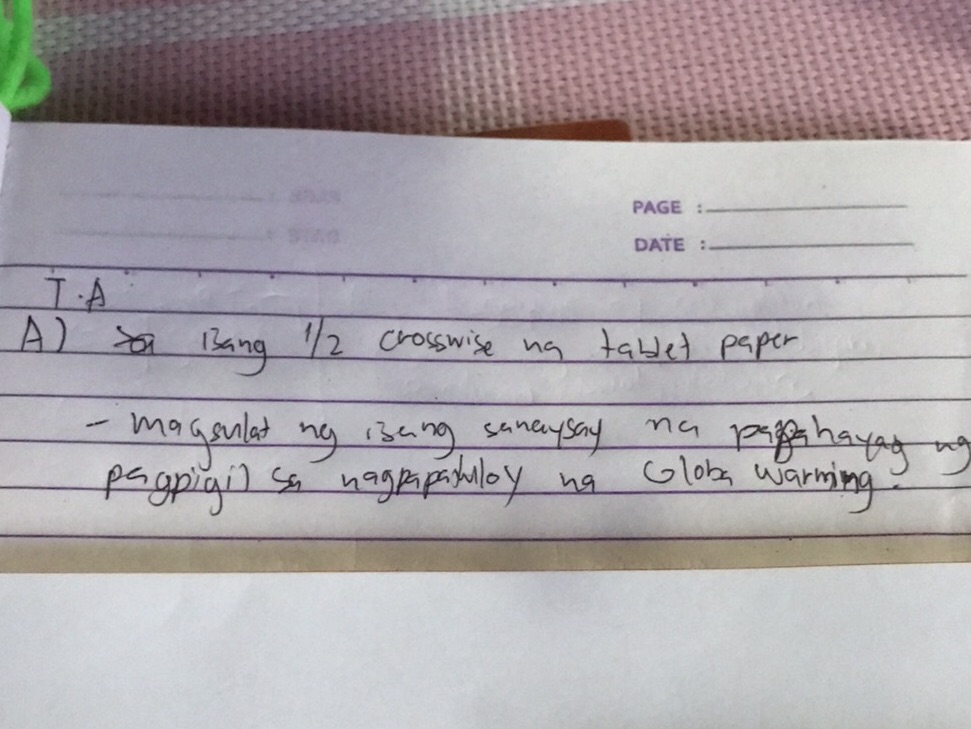 PAGE :
DATE :
T.A
A) sa isang 1/2 crosswise na tablet paper
- magsulat ng isang sanaysay na pagpahayag ng
pagpigil sa nagpapatuloy na Globa warming.